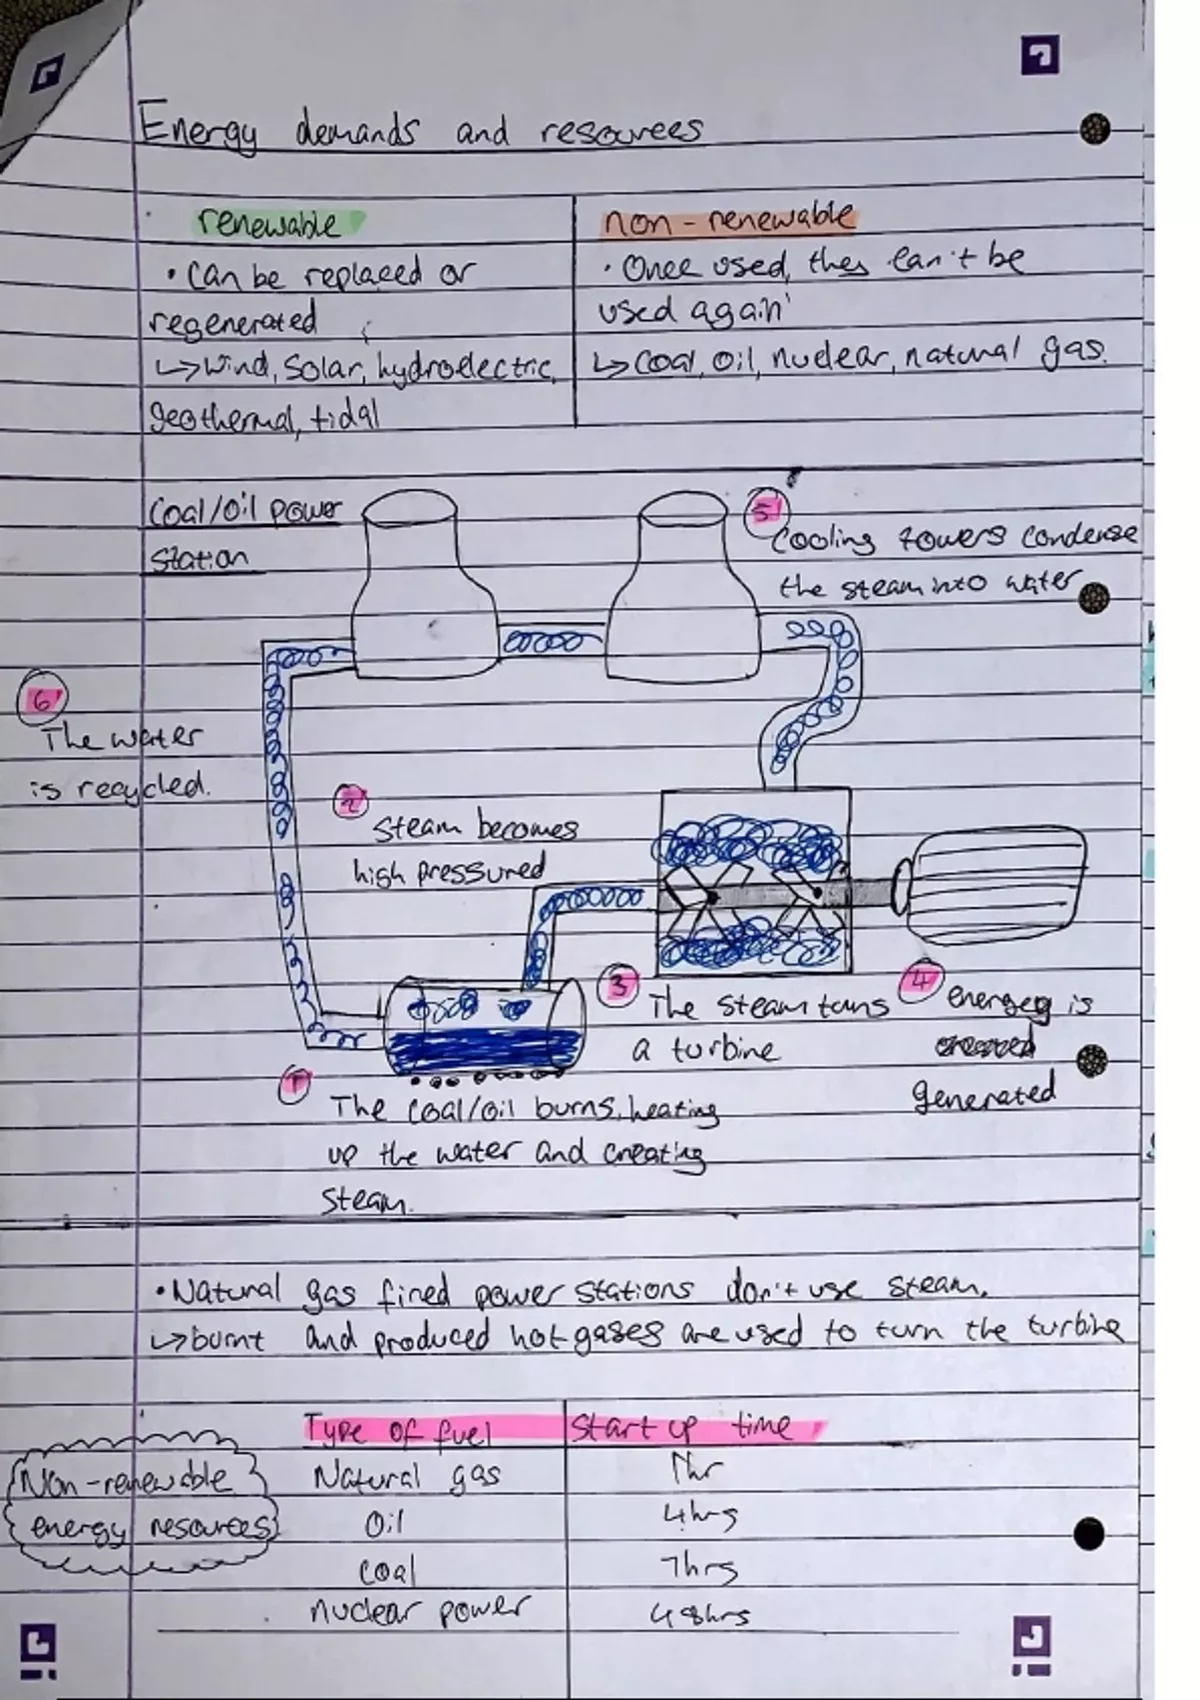 Energy demands and resources
renewable
• Can be replaced or
regenerated
↳ Wind, Solar, hydroelectric,
geothermal, tidal
non-renewable
• Once used, they can't be
used again
↳ Coal, Oil, nuclear, natural gas.
Coal/oil power
Station
5
Cooling towers condense
the steam into water
6
The water
is recycled.
2
Steam becomes
high pressured
3
The steam turns
a turbine
4
energy is
generated
1
The coal/oil burns, heating
up the water and creating
Steam.
• Natural gas fired power stations don't use steam.
↳ burnt and produced hot gases are used to turn the turbine
Non-renewable
energy resources
Type of fuel Start up time
Natural gas 1hr
Oil 4hrs
Coal 7hrs
nuclear power 48hrs